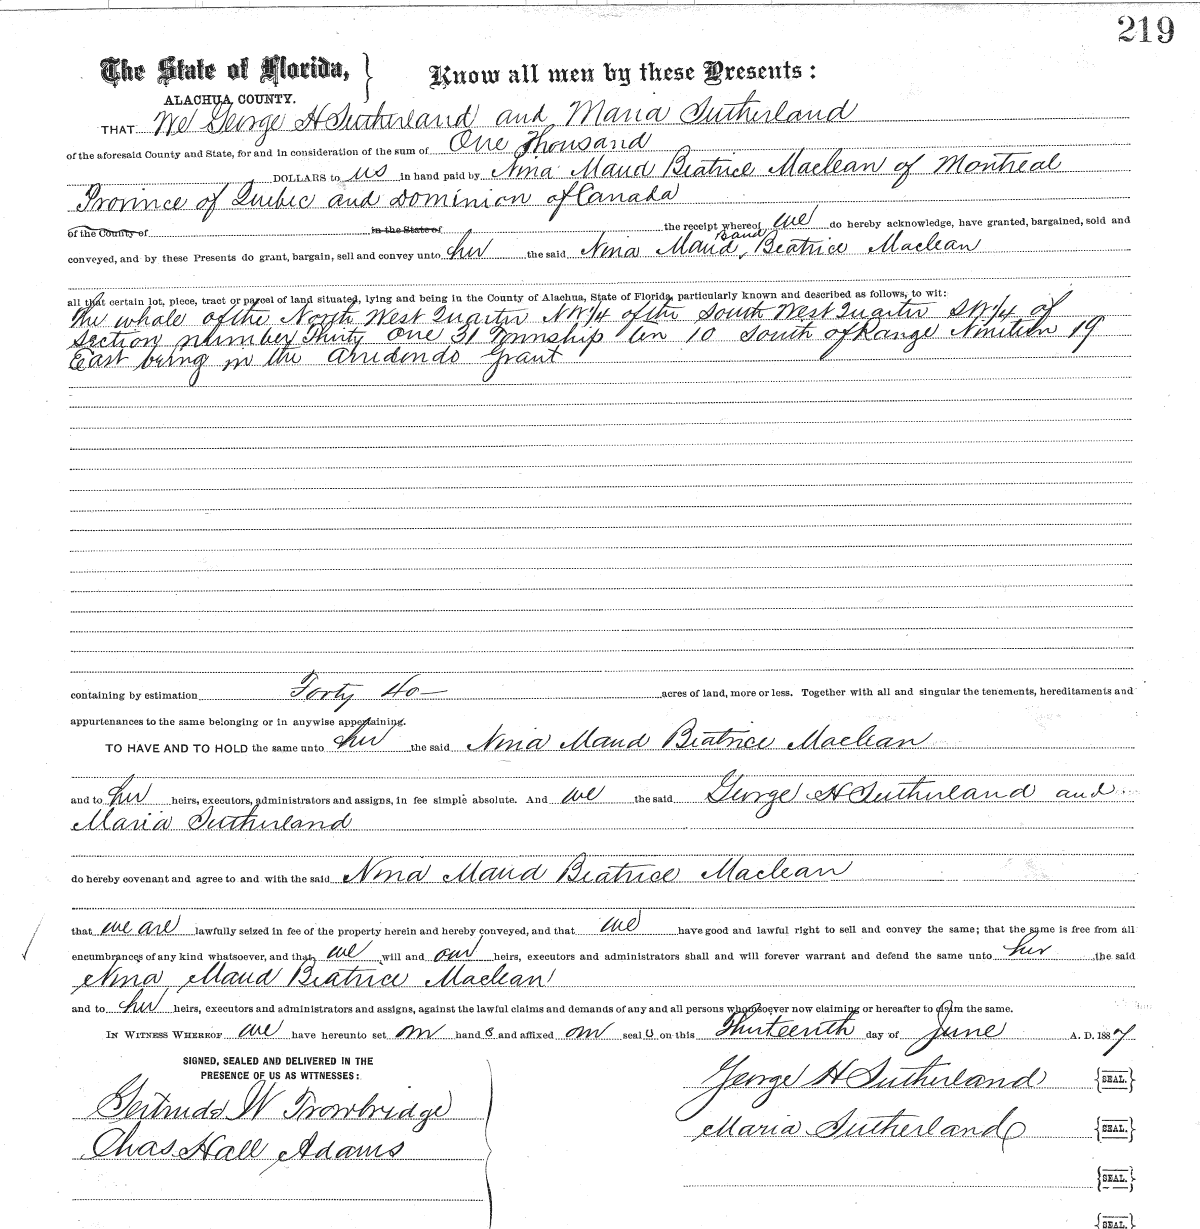 219
The State of Florida, } Know all men by these Presents:
ALACHUA COUNTY.
THAT We George H Sutherland and Maria Sutherland
of the aforesaid County and State, for and in consideration of the sum of One Thousand
DOLLARS to us in hand paid by Nina Maud Beatrice Maclean of Montreal
Province of Quebec and Dominion of Canada
of the County of in the State of the receipt whereof we do hereby acknowledge, have granted, bargained, sold and
conveyed, and by these Presents do grant, bargain, sell and convey unto her the said Nina Maud Beatrice Maclean
all that certain lot, piece, tract or parcel of land situated, lying and being in the County of Alachua, State of Florida, particularly known and described as follows, to wit:
The whole of the North West Quarter NW1/4 of the South West Quarter SW1/4 of
Section number Thirty One 31 Township Ten 10 South of Range Nineteen 19
East being in the Arredondo Grant
containing by estimation Forty 40— acres of land, more or less. Together with all and singular the tenements, hereditaments and
appurtenances to the same belonging or in anywise appertaining.
TO HAVE AND TO HOLD the same unto her the said Nina Maud Beatrice Maclean
and to her heirs, executors, administrators and assigns, in fee simple absolute. And we the said George H Sutherland and
Maria Sutherland
do hereby covenant and agree to and with the said Nina Maud Beatrice Maclean
that we are lawfully seized in fee of the property herein and hereby conveyed, and that we have good and lawful right to sell and convey the same; that the same is free from all
encumbrances of any kind whatsoever, and that we will and our heirs, executors and administrators shall and will forever warrant and defend the same unto her the said
Nina Maud Beatrice Maclean
and to her heirs, executors and administrators and assigns, against the lawful claims and demands of any and all persons whomsoever now claiming or hereafter to claim the same.
IN WITNESS WHEREOF we have hereunto set our hand s and affixed our seal s on this Thirteenth day of June A. D. 1887
SIGNED, SEALED AND DELIVERED IN THE
PRESENCE OF US AS WITNESSES:
George H Sutherland {SEAL.}
Gertrude W Trowbridge
Maria Sutherland {SEAL.}
Chas Hall Adams
{SEAL.}
{SEAL.}